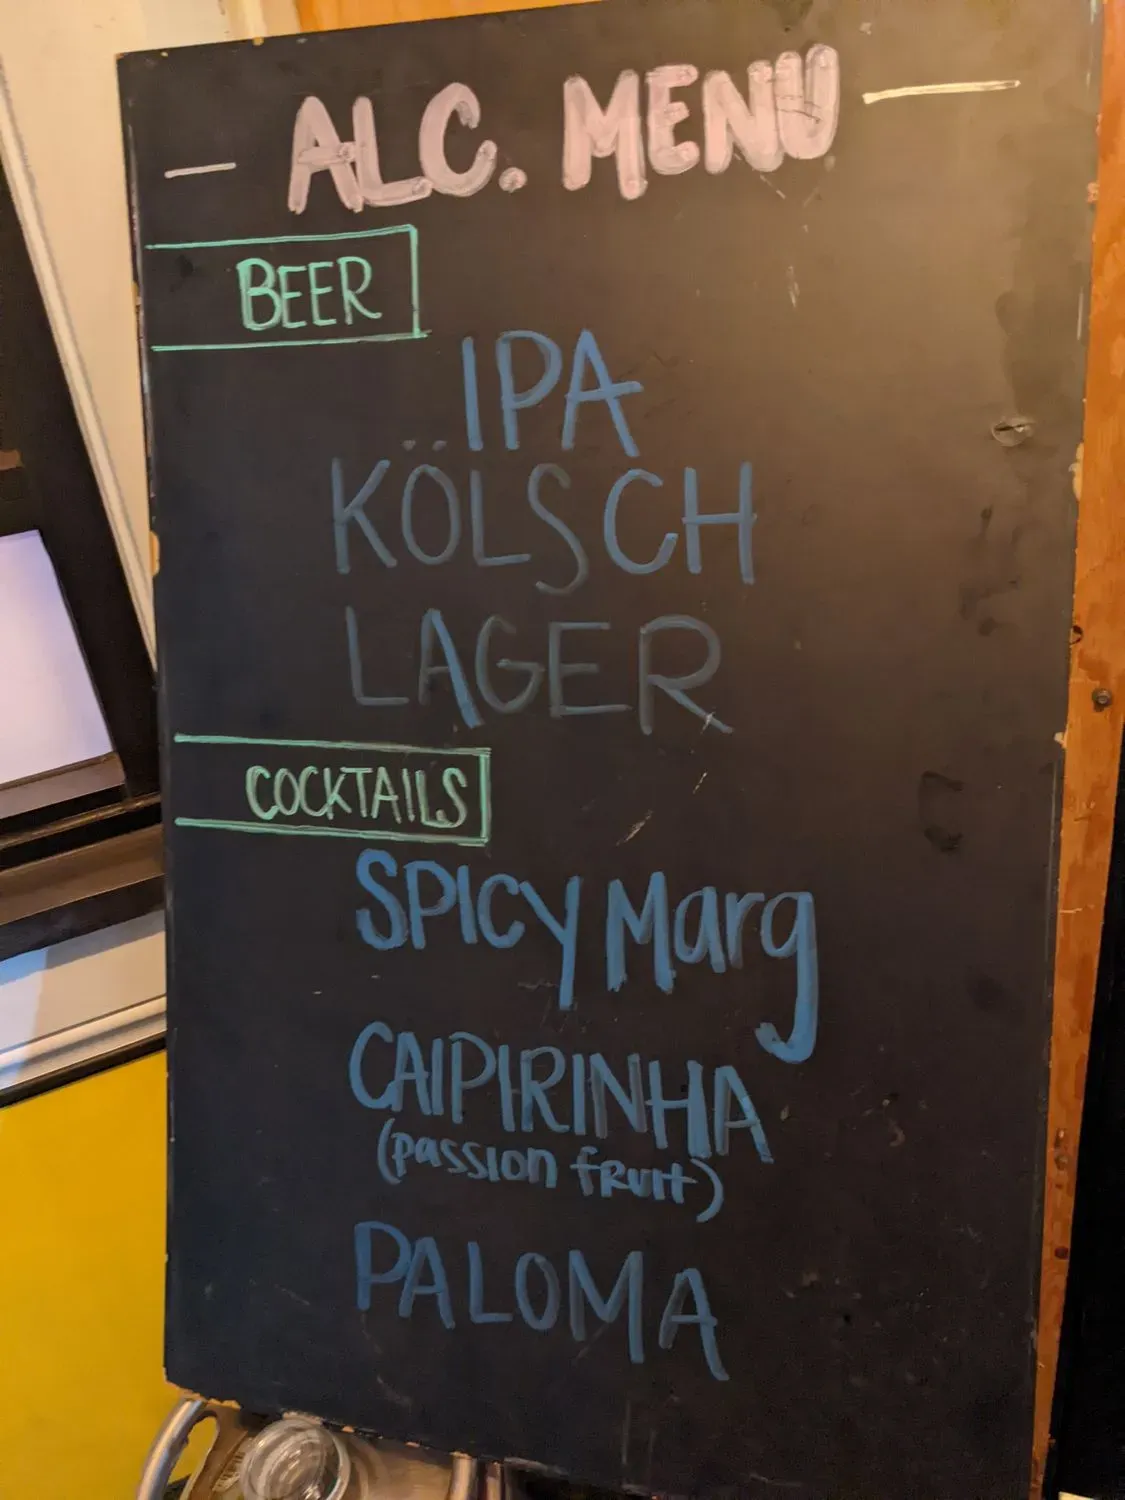 ALC. MENU
BEER
IPA
KÖLSCH
LAGER
COCKTAILS
SPICY Marg
CAIPIRINHA
(passion fruit)
PALOMA